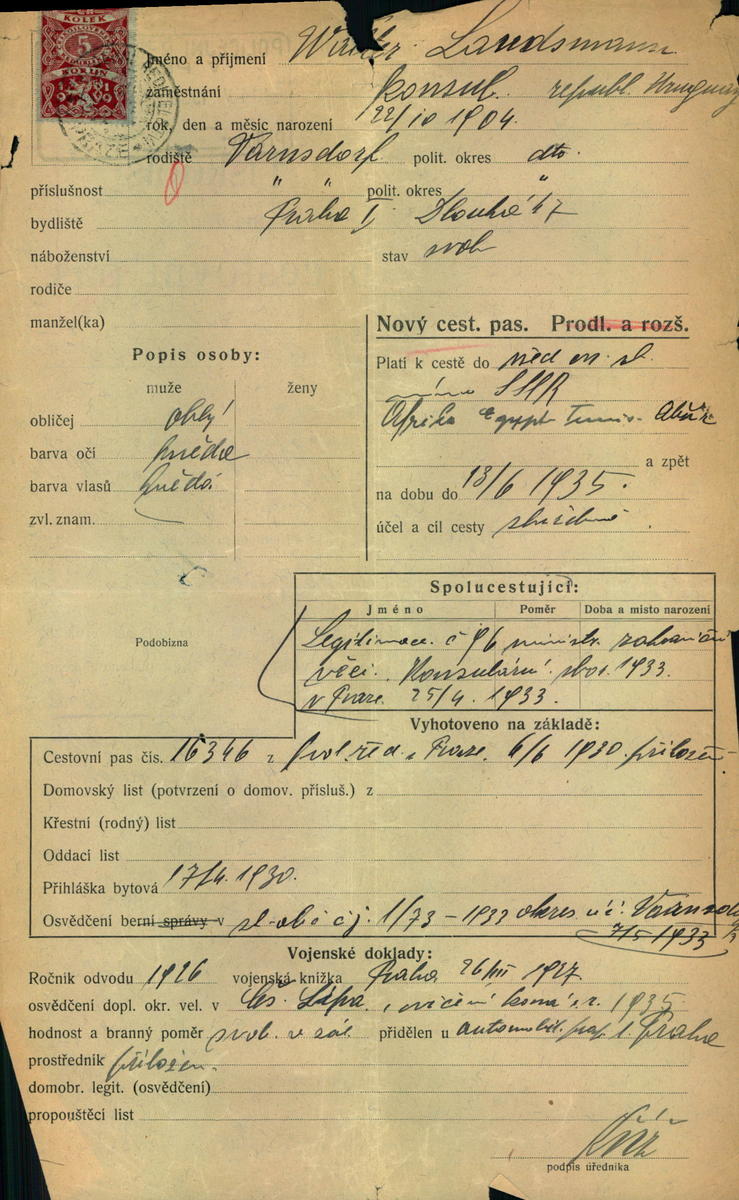 KOLEK
5
KORUN
Jméno a příjmení Walter Landsmann
zaměstnání konsul republ. Uruguay
rok, den a měsíc narození 22/10 1904.
rodiště Varnsdorf polit. okres dto.
příslušnost " " polit. okres "
bydliště Praha I Dlouhá 47
náboženství stav svob
rodiče
manžel(ka)
Nový cest. pas. Prodl. a rozš.
Popis osoby:
muže ženy
obličej oblý
barva očí hnědé
barva vlasů hnědá
zvl. znam.
Platí k cestě do
SSSR
Afrika Egypt Tunis.
a zpět
na dobu do 13/6 1935.
účel a cíl cesty služebně
Podobizna
Spolucestující:
Jméno Poměr Doba a místo narození
Legitimace č 96 minist. zahraniční
věcí. Konsulární sbor 1933.
v Praze 25/4. 1933.
Vyhotoveno na základě:
Cestovní pas čís. 16346 z pol. řed. v Praze. 6/6 1930. přiložen
Domovský list (potvrzení o domov. přísluš.) z
Křestní (rodný) list
Oddací list
Přihláška bytová 17/4. 1930.
Osvědčení berní správy v čj. 1/73 – 1933 okres. Varnsd
7/5 1933
Vojenské doklady:
Ročník odvodu 1926 vojenská knížka Praha 26/III 1927
osvědčení dopl. okr. vel. v Čes. Lípa, cvičení koná r. 1935
hodnost a branný poměr svob. v zál přidělen u automobil. prap. 1. Praha
prostředník přiložen.
domobr. legit. (osvědčení)
propouštěcí list
podpis úředníka